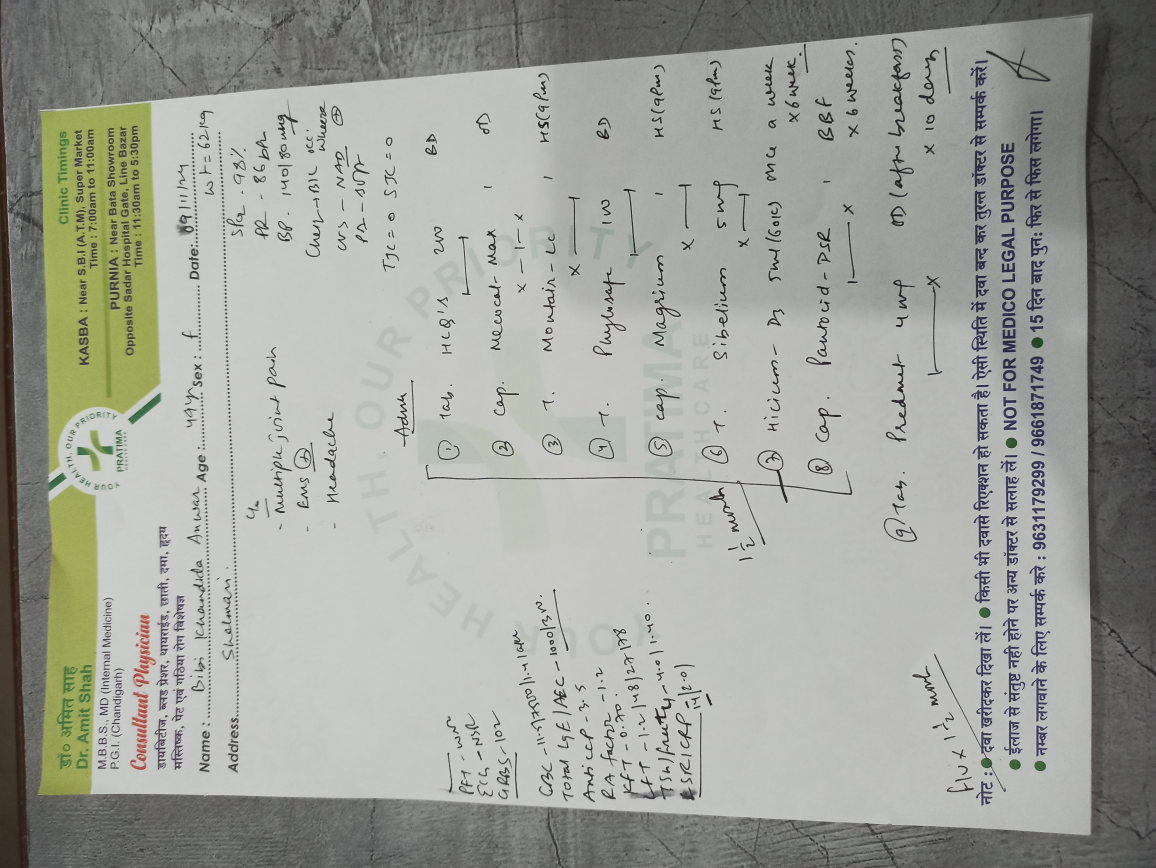 डॉ० अमित साह
Dr. Amit Shah
M.B.B.S., MD (Internal Medicine)
P.G.I. (Chandigarh)
Consultant Physician
डायबिटीज, ब्लड प्रेशर, थायराईड, छाती, दमा, हृदय
मस्तिष्क, पेट एवं गठिया रोग विशेषज्ञ
YOUR HEALTH, OUR PRIORITY
PRATIMA
HEALTHCARE
Clinic Timings
KASBA : Near S.B.I (A.T.M), Super Market
Time : 7:00am to 11:00am
PURNIA : Near Bata Showroom
Opposite Sadar Hospital Gate, Line Bazar
Time : 11:30am to 5:30pm
Name : Bibi Khandida Anwar Age : 44yr Sex : f Date: 09/11/24
Address. Shalmari. wt = 62kg
SPo2 - 98%
PR - 86 bpm
BP. 140/80 mmHg
Chest → B/L occ. wheeze
CVS - NAD
PA - soft
TJC = 0 SJC = 0
- Multiple joint pain
- EMS (+)
- Headache
Advice
PFT - WNL
ECG - NSR
GRBS - 102
CBC - 11.5/7500/1.41 lakh
Total IgE/AEC - 1000/300.
Anti CCP - 3.5
RA factor - 1.2
KFT - 0.70.
LFT - 1.2/48/27/78
TSH/free T4 - 4.0/1.40.
ESR/CRP - 14/2.01
① Tab. HCQ's 200 BD
② Cap. Mecocal-Max 1 OD
③ T. Montair-LC 1 HS (9pm)
④ T. Phylosafe 100 BD
⑤ Cap. Magrium 1 HS (9pm)
⑥ T. Sibelium 5 mg HS (9pm)
1 1/2 month
⑦ Hicicum-D3 5ml (60K) once a week x 6 week.
⑧ Cap. Pantocid-DSR 1 BBF x 6 weeks.
⑨ Tab. Predmet 4 mg OD (after breakfast) x 10 days
f/u x 1 1/2 month
YOUR HEALTH OUR PRIORITY
PRATIMA
HEALTHCARE
नोट : ● दवा खरीदकर दिखा लें। ● किसी भी दवासे रिएक्शन हो सकता है। ऐसी स्थिति में दवा बन्द कर तुरन्त डॉक्टर से सम्पर्क करें।
● ईलाज से संतुष्ट नही होने पर अन्य डॉक्टर से सलाह लें। ● NOT FOR MEDICO LEGAL PURPOSE
● नम्बर लगवाने के लिए सम्पर्क करे : 9631179299 / 9661871749 ● 15 दिन बाद पुन: फिर से फिस लगेगा।